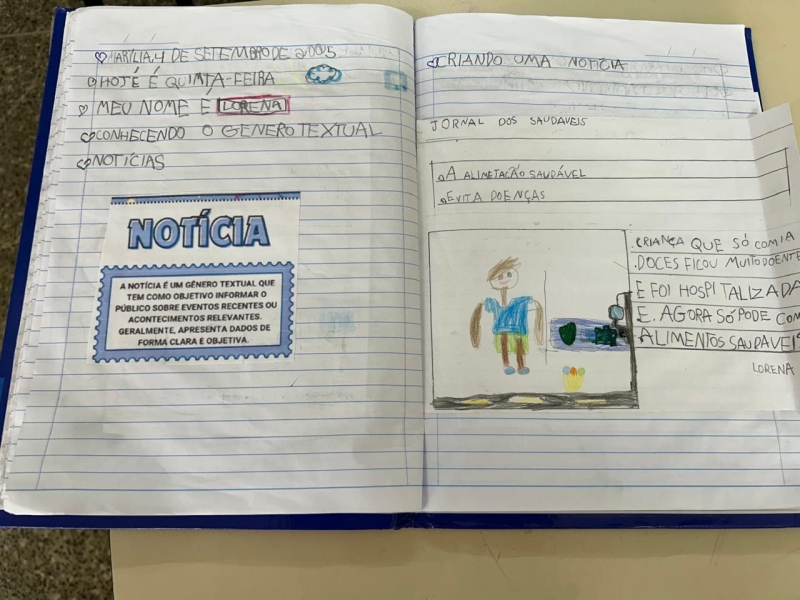 MARÍLIA, 4 DE SETEMBRO DE 2025
HOJE É QUINTA-FEIRA
MEU NOME É LORENA
CONHECENDO O GENERO TEXTUAL
NOTÍCIAS
NOTÍCIA
A NOTÍCIA É UM GÊNERO TEXTUAL QUE
TEM COMO OBJETIVO INFORMAR O
PÚBLICO SOBRE EVENTOS RECENTES OU
ACONTECIMENTOS RELEVANTES.
GERALMENTE, APRESENTA DADOS DE
FORMA CLARA E OBJETIVA.
CRIANDO UMA NOTÍCIA
JORNAL DOS SAUDAVEIS
A ALIMETAÇÃO SAUDÁVEL
EVITA DOENÇAS
CRIANÇA QUE SÓ COMIA
DOCES FICOU MUITO DOENTE
E FOI HOSPITALIZADA
E. AGORA SÓ PODE COM
ALIMENTOS SAUDAVEIS
LORENA